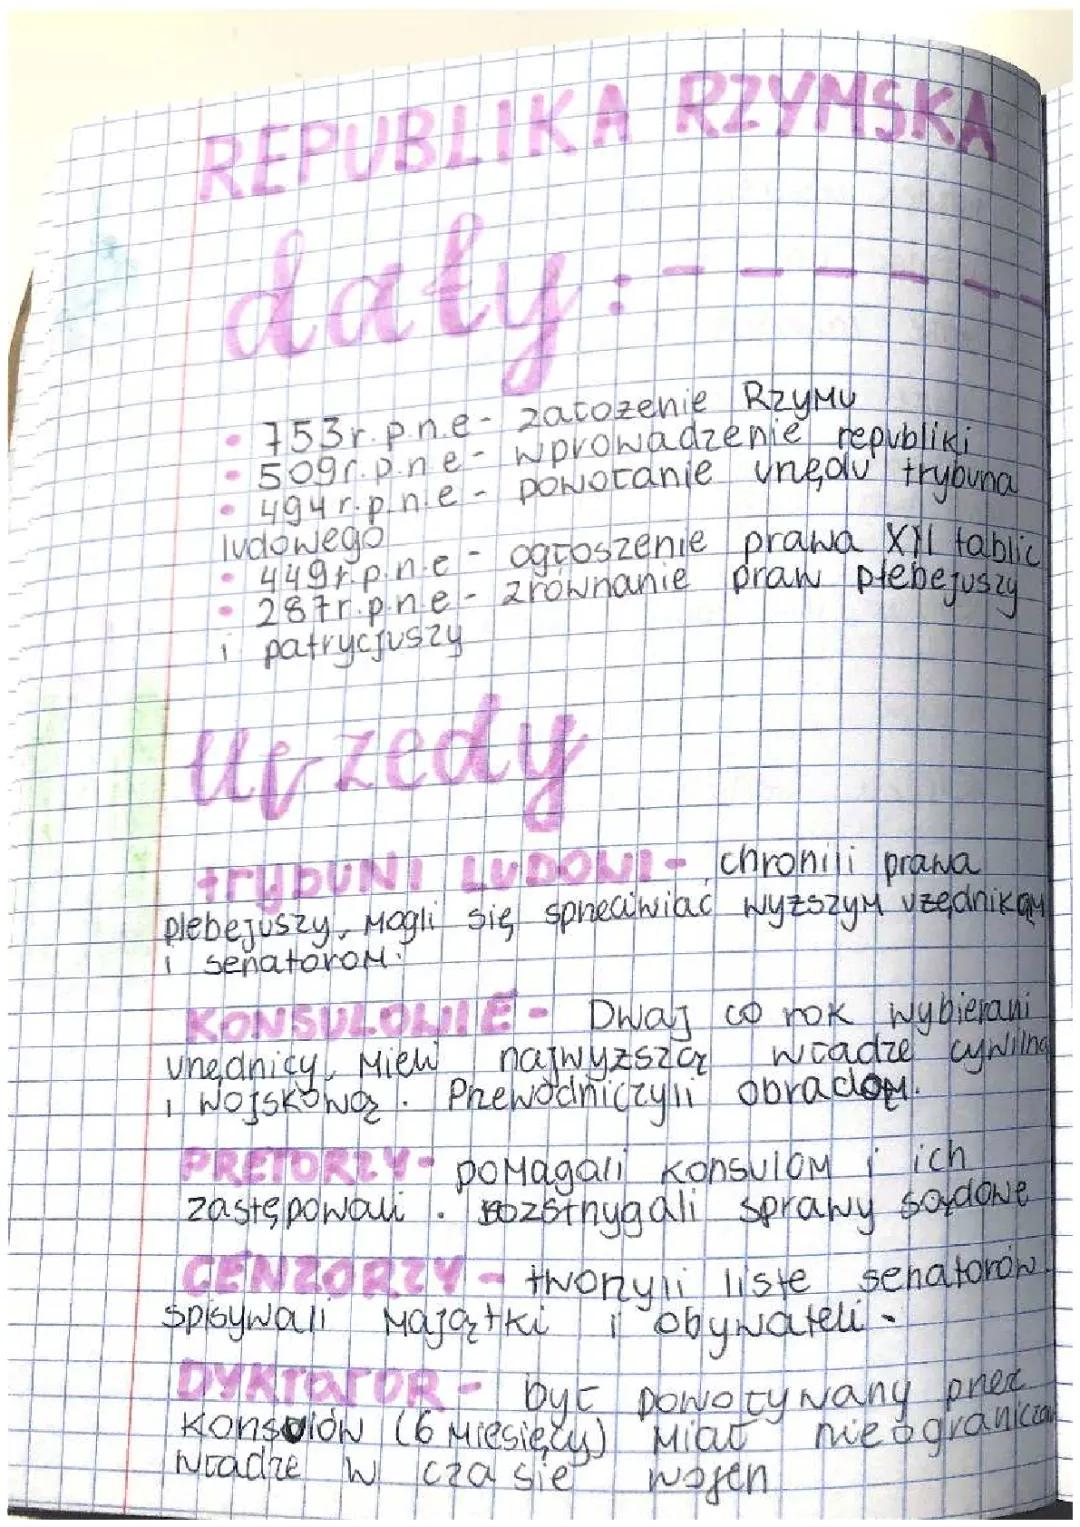 REPUBLIKA RZYMSKA
daty:------
• 753r.p.n.e- założenie Rzymu
• 509r.p.n.e- wprowadzenie republiki
• 494r.p.n.e- powołanie urzędu trybuna
ludowego
• 449r.p.n.e- ogłoszenie prawa XII tablic
• 287r.p.n.e- zrównanie praw plebejuszy
i patrycjuszy
Urzędy
trybUNI LUDOWI- chronili prawa
plebejuszy, Mogli się sprzeciwiać wyższym uzędnikom
i senatorom.
KONSULOWIE- Dwaj co rok wybierani
urzędnicy, Mieli najwyższą władze cywilną
i wojskową. Przewodniczyli obradom.
PRETORZY- pomagali konsulom i ich
zastępowali. rozstrzygali sprawy sądowe
CENZORZY- tworzyli liste senatorów
spisywali Majątki i obywateli-
DYKTaTOR- był powoływany przez
konsulów (6 Miesięcy) Miał nieograniczoną
władze w czasie wojen